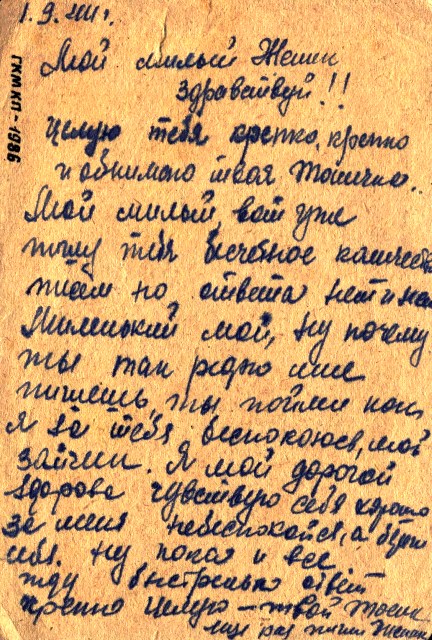 1. 9. 41 г.
ГКМ КП-1986
Мой милый Женик
здравствуй!!
Целую тебя крепко, крепко
и обнимаю твоя Тосичка..
Мой милый вот уже
пишу тебе бесчебное количество
писем но, ответа нет и нет
Миленький мой, ну почему
ты так редко мне
пишешь, ты пойми как
я за тебя беспокоюся, мой
зайчик. Я мой дорогой
здорова чувствую себя хорошо
за меня небеспокойся, а береги
себя. Ну пока и все
жду быстренько ответ
крепко целую – твой Тосик
еще раз пиши Женик